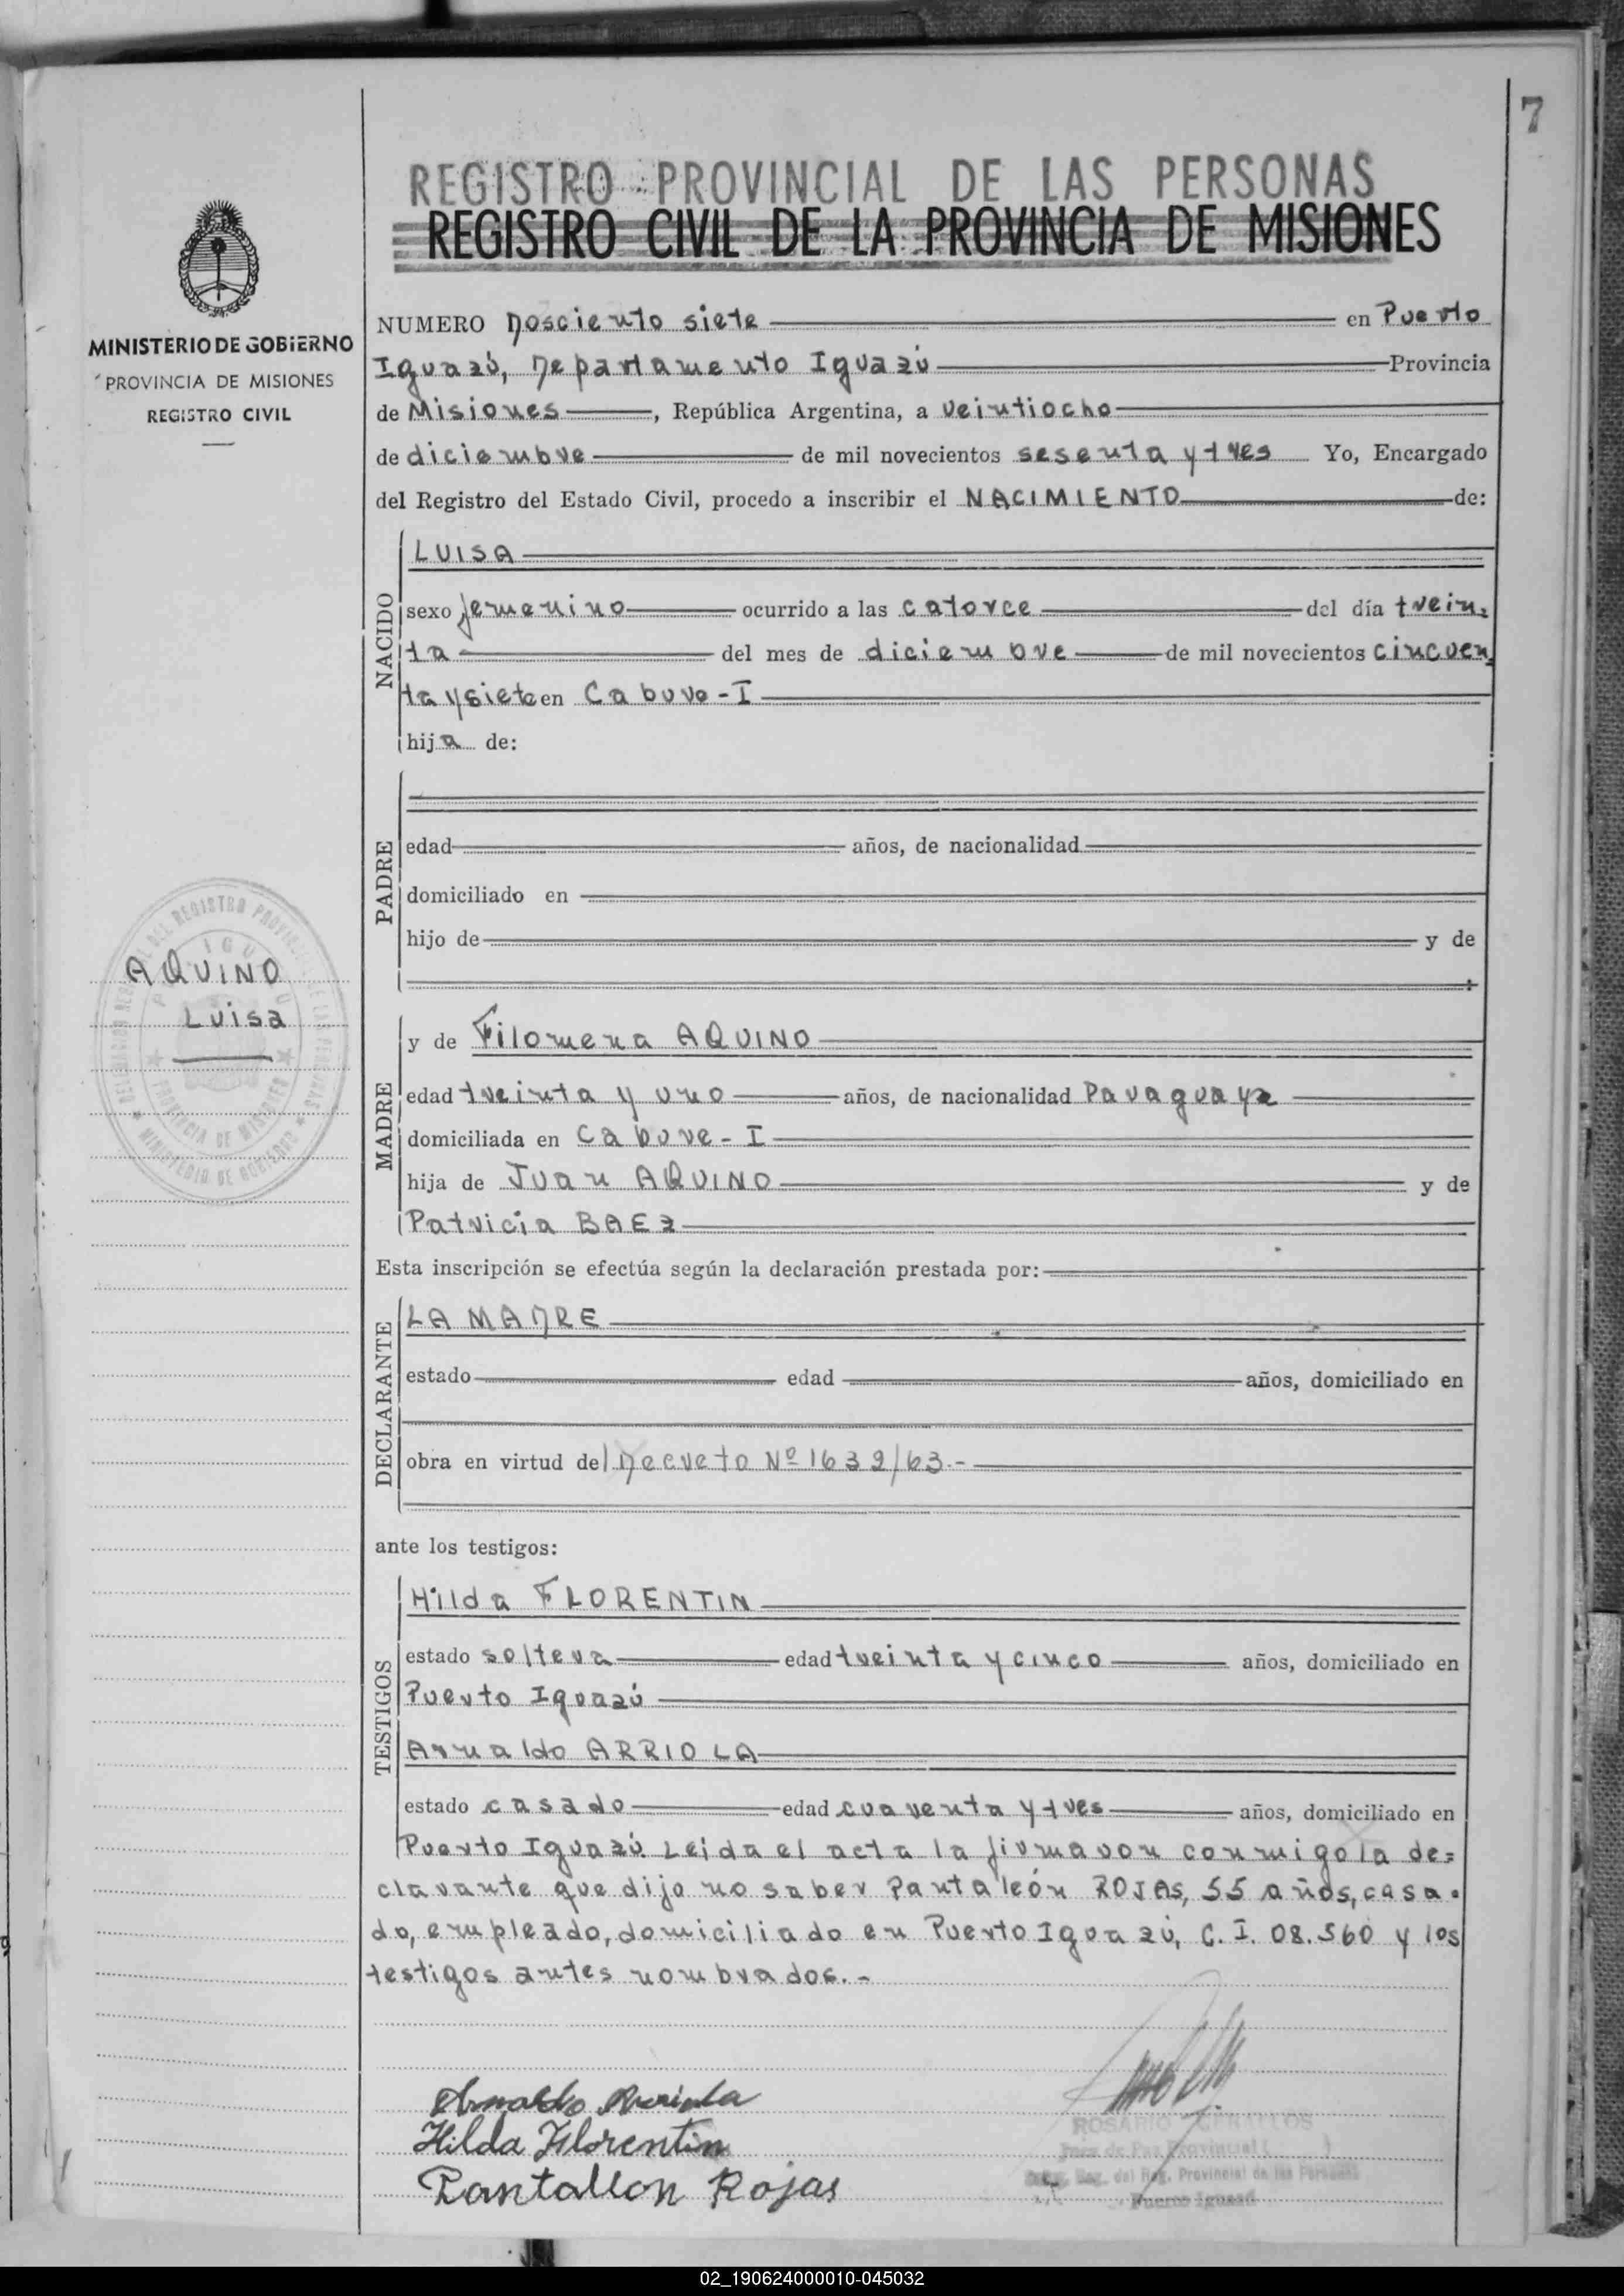 7
REGISTRO PROVINCIAL DE LAS PERSONAS
REGISTRO CIVIL DE LA PROVINCIA DE MISIONES
MINISTERIO DE GOBIERNO
PROVINCIA DE MISIONES
REGISTRO CIVIL
NUMERO Dosciento siete en Puerto
Iguazú, Departamento Iguazú Provincia
de Misiones, República Argentina, a veintiocho
de diciembre de mil novecientos sesenta y tres Yo, Encargado
del Registro del Estado Civil, procedo a inscribir el NACIMIENTO de:
NACIDO
LUISA
sexo femenino ocurrido a las catorce del día trein=
ta del mes de diciembre de mil novecientos cincuen=
ta y siete en Cabure-I
hija de:
PADRE
edad años, de nacionalidad
domiciliado en
hijo de y de
AQUINO
Luisa
MADRE
y de Filomena AQUINO
edad treinta y uno años, de nacionalidad Paraguaya
domiciliada en Cabure-I
hija de Juan AQUINO y de
Patricia BAEZ
Esta inscripción se efectúa según la declaración prestada por:
DECLARANTE
LA MADRE
estado edad años, domiciliado en
obra en virtud del Decreto Nº 1632/63.-
ante los testigos:
TESTIGOS
Hilda FLORENTIN
estado soltera edad treinta y cinco años, domiciliado en
Puerto Iguazú
Arnaldo ARRIOLA
estado casado edad cuarenta y tres años, domiciliado en
Puerto Iguazú. Leida el acta la firmaron conmigo la de=
clarante que dijo no saber Pantaleón ROJAS, 55 años, casa=
do, empleado, domiciliado en Puerto Iguazú, C. I. 08.560 y los
testigos antes nombrados.-
Arnaldo Arriola
Hilda Florentin
Pantallon Rojas
ROSARIO
Juez de Paz Provincial
del Reg. Provincial de las Personas
Puerto Iguazú
02_190624000010-045032